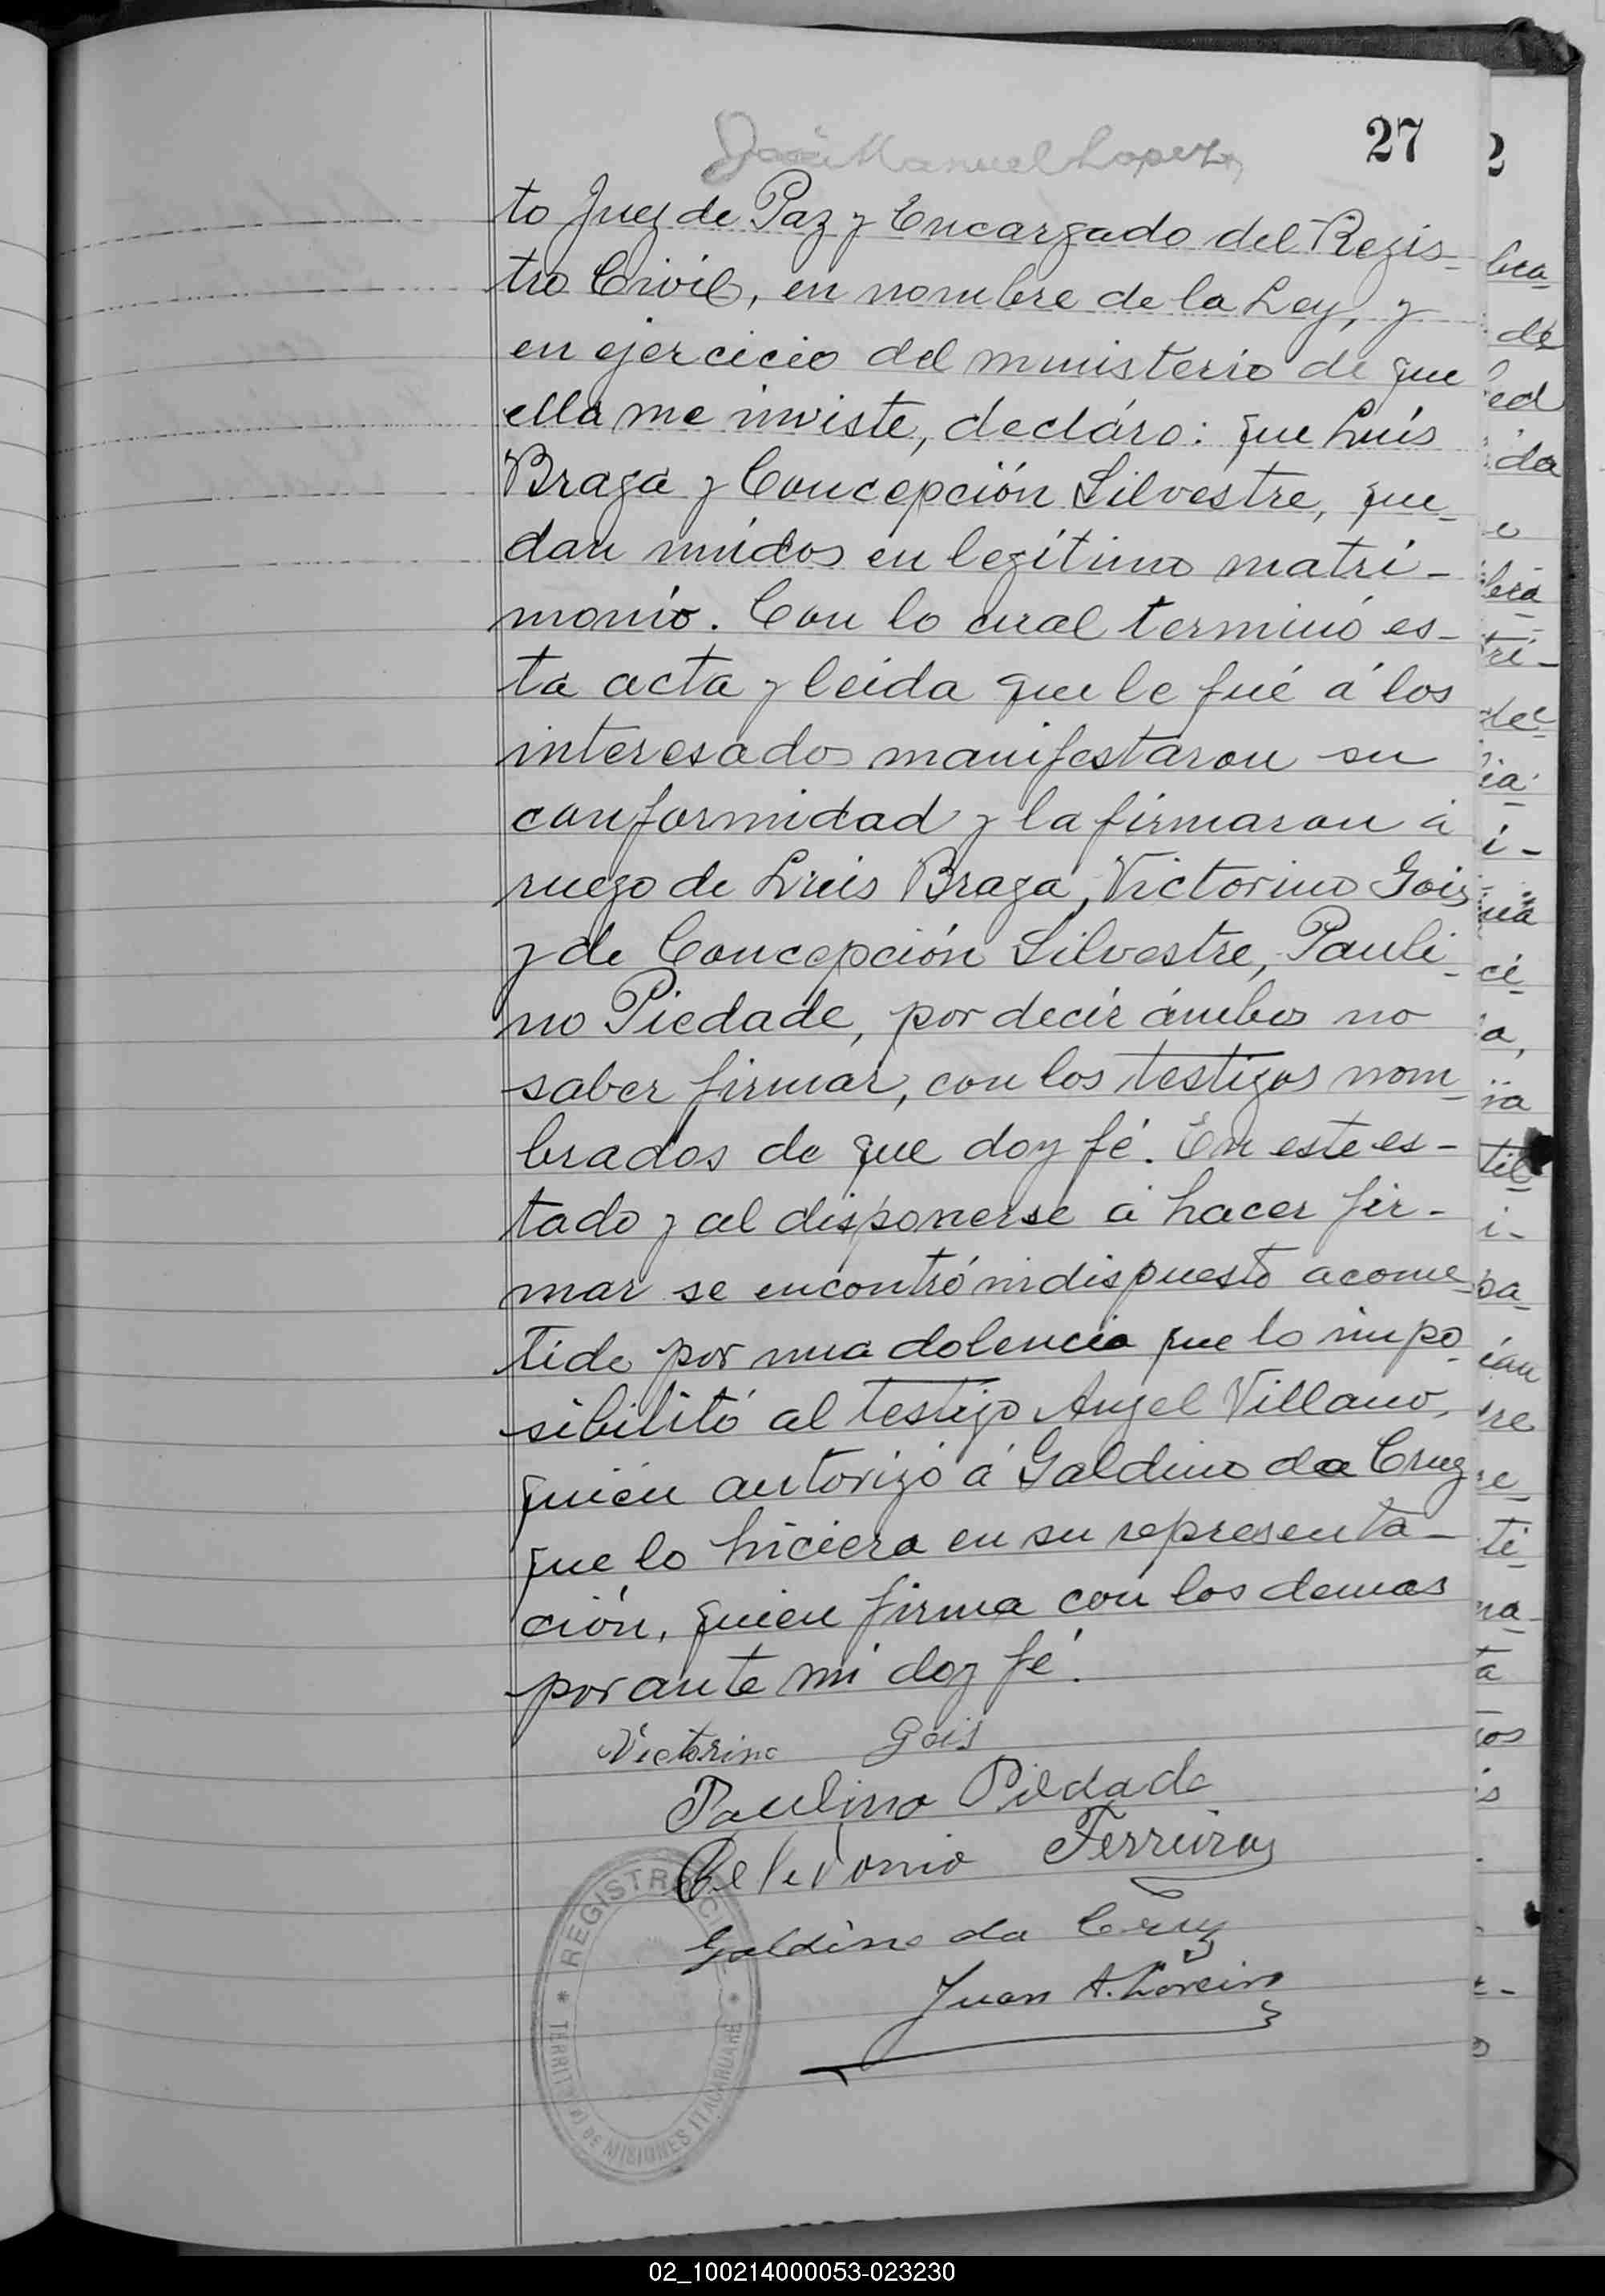 27
José Manuel Lopez
to Juez de Paz y Encargado del Regis-
tro Civil, en nombre de la Ley, y
en ejercicio del ministerio de que
ella me inviste, decláro: que Luís
Braga y Concepción Silvestre, que-
dan unidos en legítimo matri-
monio. Con lo cual terminó es-
ta acta y leida que le fué á los
interesados manifestaron su
conformidad y la firmaron á
ruego de Luis Braga, Victorino Gois
y de Concepción Silvestre, Pauli-
no Piedade, por decir ámbos no
saber firmar, con los testigos nom-
brados de que doy fé. En este es-
tado y al disponerse á hacer fir-
mar se encontró indispuesto acome-
tido por una dolencia que lo impo-
sibilitó al testigo Angel Villano,
quien autorizó á Galdino da Cruz
que lo hiciera en su representa-
ción, quien firma con los demas
por ante mi doy fé.
Victorino Gois
Paulino Piedade
Celedonio Ferreira
Galdino da Cruz
Juan A. Loreiro
REGISTRO CIVIL
TERRITORIO DE MISIONES ITACARUARE
02_100214000053-023230